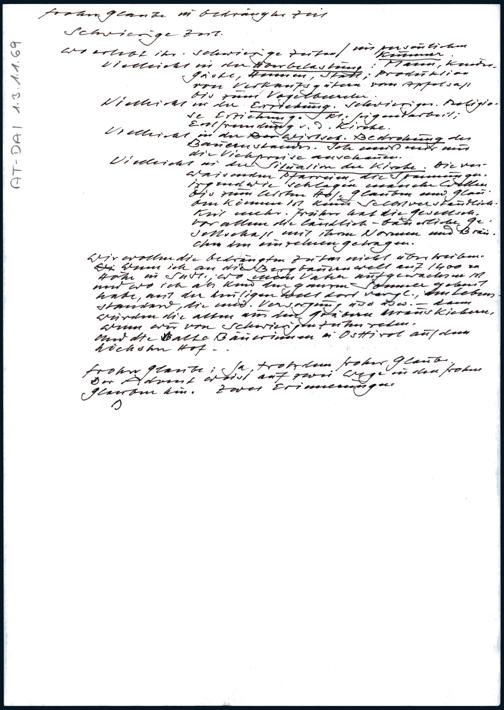 AT-DAI 1.3.1.1.69
Froher Glaube in bedrängter Zeit
Schwierige Zeit.
Wo erlebt ihr schwierige Zeiten / im persönlichen
Kummer.
Vielleicht in der Überbelastung: Mann, Kinder
Gäste, Stall; Produktion
von Verkaufsgütern von Apfelsaft
bis zum Vogelbeerler.
Vielleicht in der Erziehung. Schwieriger. Religiö-
se Erziehung. Jugendarbeit;
Entfremdung v. d. Kirche.
Vielleicht in der Bedrohung des
Bauernstandes. Ich muß mir nur
die Viehpreise anschauen.
Vielleicht in der Situation der Kirche. Die ver-
waisenden Pfarreien, die Spannungen.
irgendwie schlagen manche Wellen
bis zum letzten Hof. Glauben und Glau-
ben können ist keine Selbstverständlich-
keit mehr. Früher hat die Gesellsch.
vor allem die ländlich-bäuerliche Ge-
sellschaft mit ihren Normen und Bräu-
chen den einzelnen getragen.
Wir wollen die bedrängten Zeiten nicht übertreiben.
Wenn ich an die Bergbauernwelt auf 1400 m
Höhe in Südt., wo mein Vater aufgewachsen ist
und wo ich als Kind den ganzen Sommer gelebt
habe, mit der heutigen Welt dort vergl., den Lebens-
standard, die med. Versorgung usw. usw. – dann
würden die alten aus den Gräbern heraus kichern,
wenn wir von schwierigen Zeiten reden.
Und die Bäuerinnen in Osttirol auf dem
höchsten Hof...
Froher Glaube: Ja, trotzdem froher Glaube.
Der Advent weist auf zwei Wege in den frohen
Glauben hin. Zwei Erinnerungen